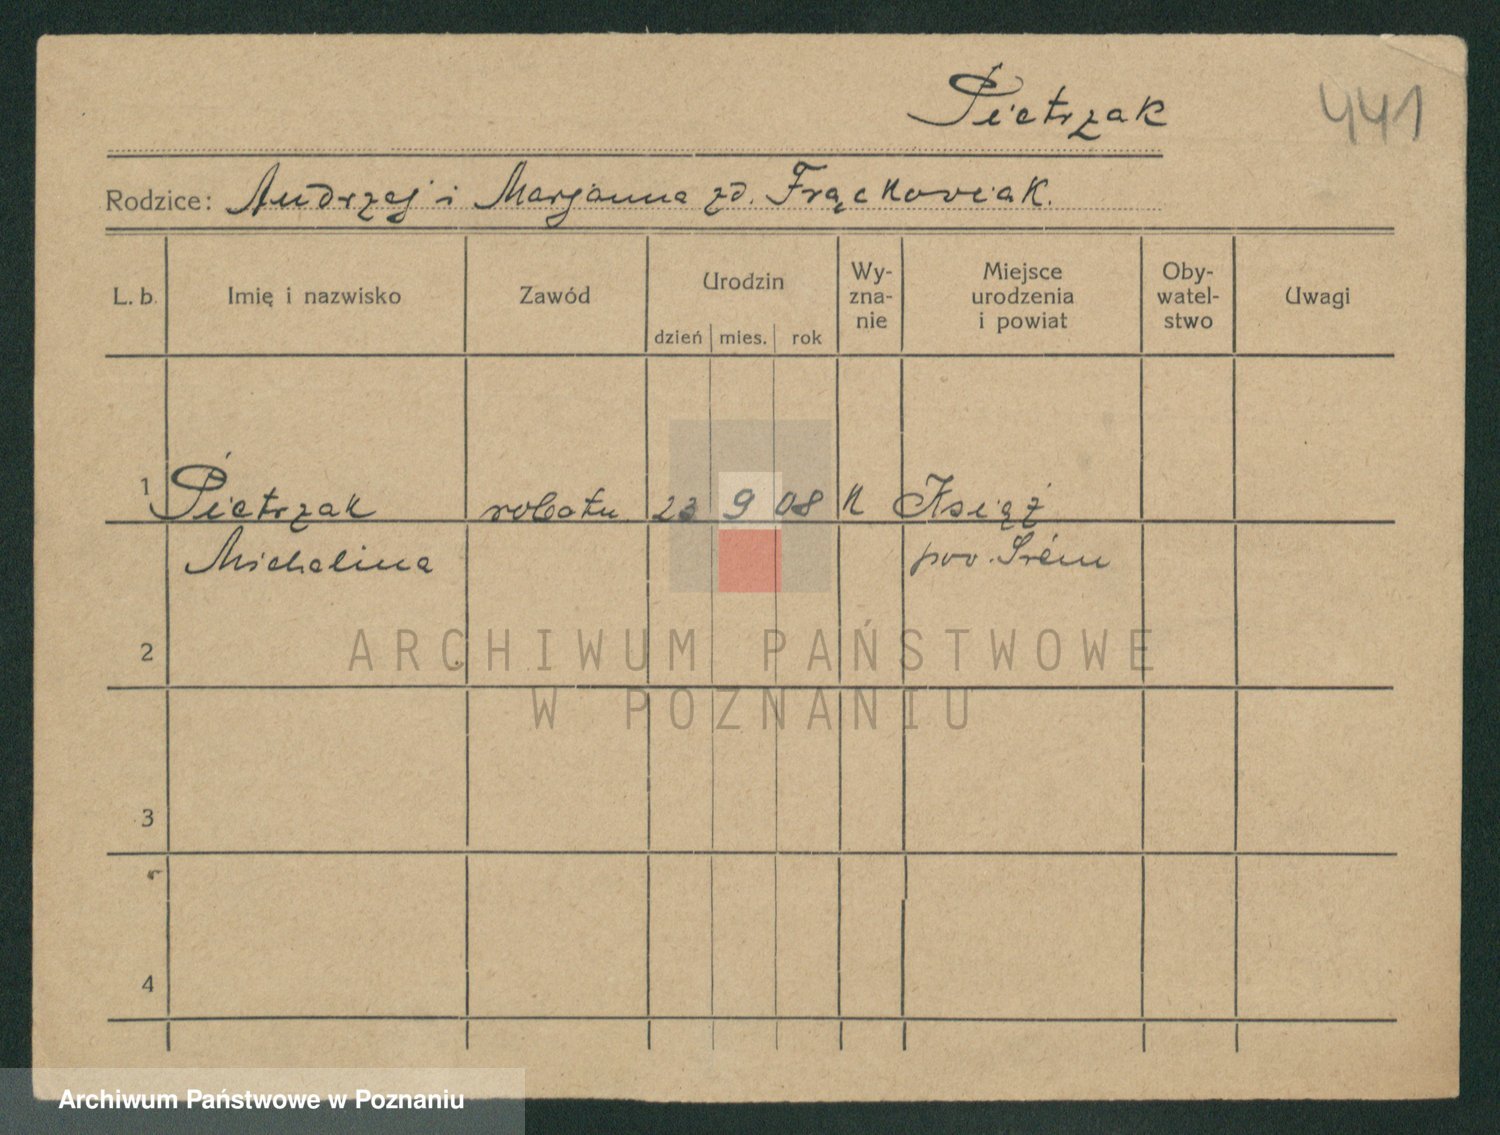 Pietrzak
441
Rodzice: Andrzej i Marjanna zd. Frąckoviak.
L. b. Imię i nazwisko Zawód Urodzin dzień mies. rok Wy-zna-nie Miejsce urodzenia i powiat Oby-watel-stwo Uwagi
1 Pietrzak robotn. 23 9 08 K Książ
Michalina pow. Śrem
2
ARCHIWUM PAŃSTWOWE
W POZNANIU
3
4
Archiwum Państwowe w Poznaniu